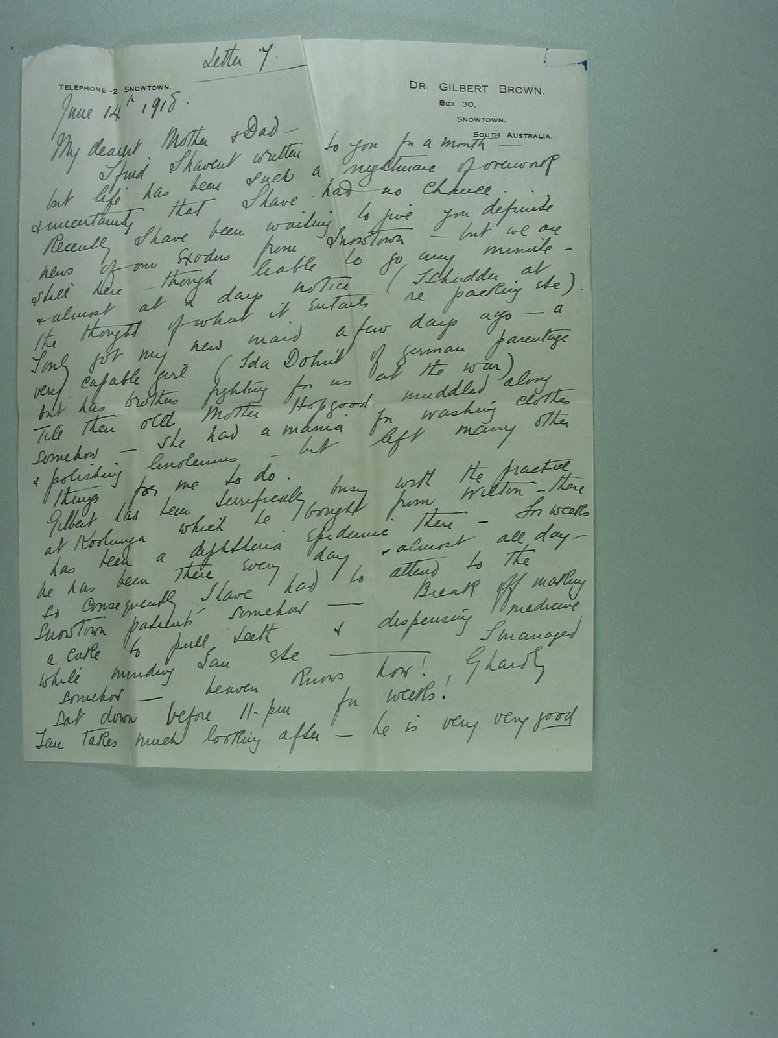 Letter 7.
TELEPHONE 2, SNOWTOWN.
DR. GILBERT BROWN.
BOX 30,
SNOWTOWN,
SOUTH AUSTRALIA.
June 14th 1918.
My dearest Mother & Dad —
I find I havent written to you for a month —
but life has been such a nightmare of overwork
& uncertainty that I have had no chance.
Recently I have been waiting to give you definite
news of our Exodus from Snowtown — but we are
still here — though liable to go any minute —
& almost at a days notice (I shudder at
the thought of what it entails re packing etc).
I only got my new maid a few days ago — a
very capable girl (Ida Dohnt of german parentage
but has brothers fighting for us at the war)
Till then old Mother Hopgood muddled along
somehow — she had a mania for washing clothes
& polishing linoleums — but left many other
things for me to do.
Gilbert has been terrifically busy with the practice
at Koolunga which he bought from Wilton — there
has been a diphtheria Epidemic there — for weeks
he has been there every day & almost all day —
so consequently I have had to attend to the
Snowtown patients somehow — Break off making
a cake to pull teeth & dispensing medicine
while minding Ian etc — I managed
somehow — heaven knows how! I hardly
sat down before 11-pm for weeks!
Ian takes much looking after — he is very very good